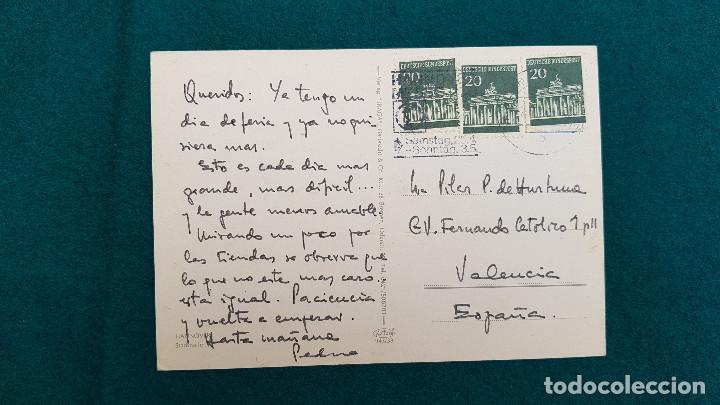 Queridos: Ya tengo un
dia de feria y ya no qui
siera mas.
Esto es cada dia mas
grande, mas dificil...
y la gente menos amable
Mirando un poco por
las tiendas se observa que
lo que no este mas caro
esta igual. Paciencia
y vuelta a empezar.
Hasta mañana
Pedro
HANNOVER
DEUTSCHE BUNDESPOST
20
DEUTSCHE BUNDESPOST
20
DEUTSCHE BUNDESPOST
20
Samstag,
-Sonntag, 3.5.
Pilar P. de
G.V. Fernando Catolico 1 pII
Valencia
España.
todocoleccion
todocoleccion.net